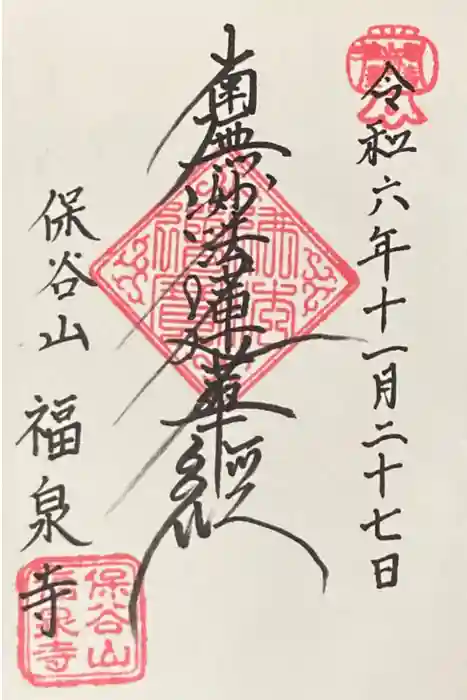 令和六年十一月二十七日
南無妙法蓮華経
保谷山 福泉寺
保谷山
福泉寺